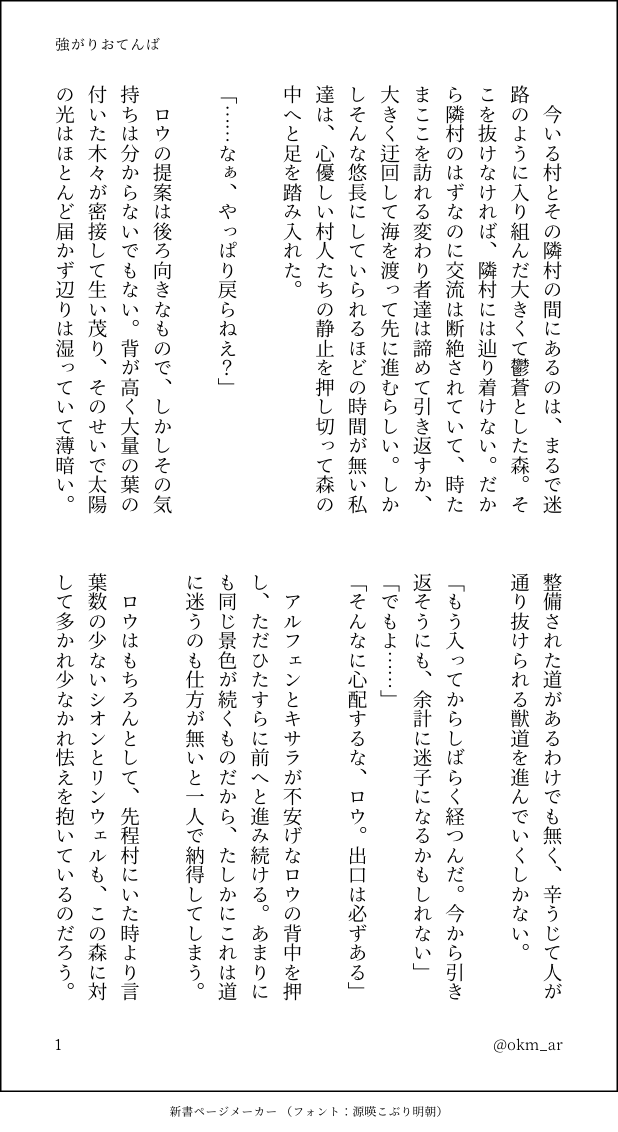 強がりおてんば
　今いる村とその隣村の間にあるのは、まるで迷
路のように入り組んだ大きくて鬱蒼とした森。そ
こを抜けなければ、隣村には辿り着けない。だか
ら隣村のはずなのに交流は断絶されていて、時た
まここを訪れる変わり者達は諦めて引き返すか、
大きく迂回して海を渡って先に進むらしい。しか
しそんな悠長にしていられるほどの時間が無い私
達は、心優しい村人たちの静止を押し切って森の
中へと足を踏み入れた。
「……なぁ、やっぱり戻らねえ？」
　ロウの提案は後ろ向きなもので、しかしその気
持ちは分からないでもない。背が高く大量の葉の
付いた木々が密接して生い茂り、そのせいで太陽
の光はほとんど届かず辺りは湿っていて薄暗い。
整備された道があるわけでも無く、辛うじて人が
通り抜けられる獣道を進んでいくしかない。
「もう入ってからしばらく経つんだ。今から引き
返そうにも、余計に迷子になるかもしれない」
「でもよ……」
「そんなに心配するな、ロウ。出口は必ずある」
　アルフェンとキサラが不安げなロウの背中を押
し、ただひたすらに前へと進み続ける。あまりに
も同じ景色が続くものだから、たしかにこれは道
に迷うのも仕方が無いと一人で納得してしまう。
　ロウはもちろんとして、先程村にいた時より言
葉数の少ないシオンとリンウェルも、この森に対
して多かれ少なかれ怯えを抱いているのだろう。
1
@okm_ar
新書ページメーカー（フォント：源暎こぶり明朝）